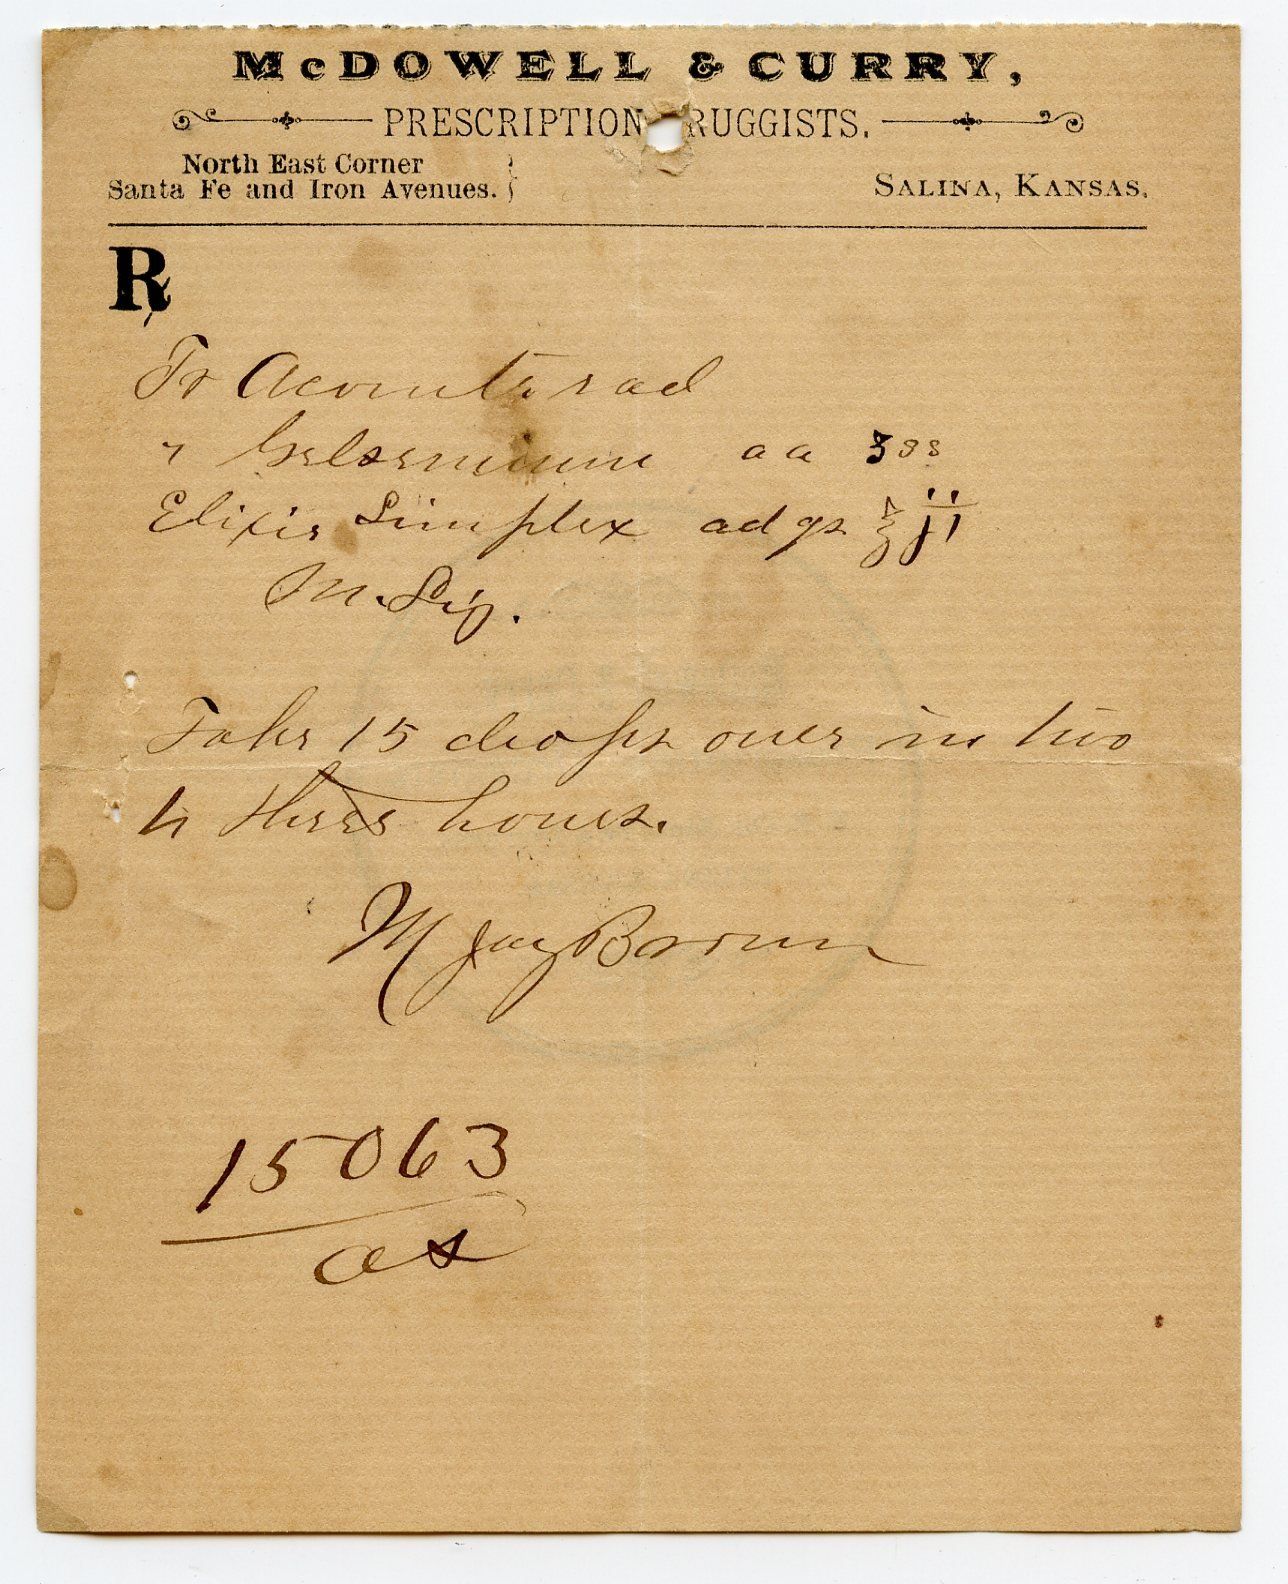 McDOWELL & CURRY,
PRESCRIPTION RUGGISTS.
North East Corner
Santa Fe and Iron Avenues.
SALINA, KANSAS.
R
Tr Aconite rad
" Gelsemium aa ʒss
Elixir Simplex ad qs ℥ij
M. Sig.
Take 15 drops over in two
or three hours.
M Jay Brown
15063